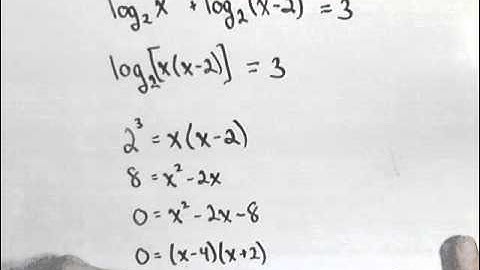 log₂x + log₂(x-2) = 3
log₂[x(x-2)] = 3
2³ = x(x-2)
8 = x² - 2x
0 = x² - 2x - 8
0 = (x-4)(x+2)